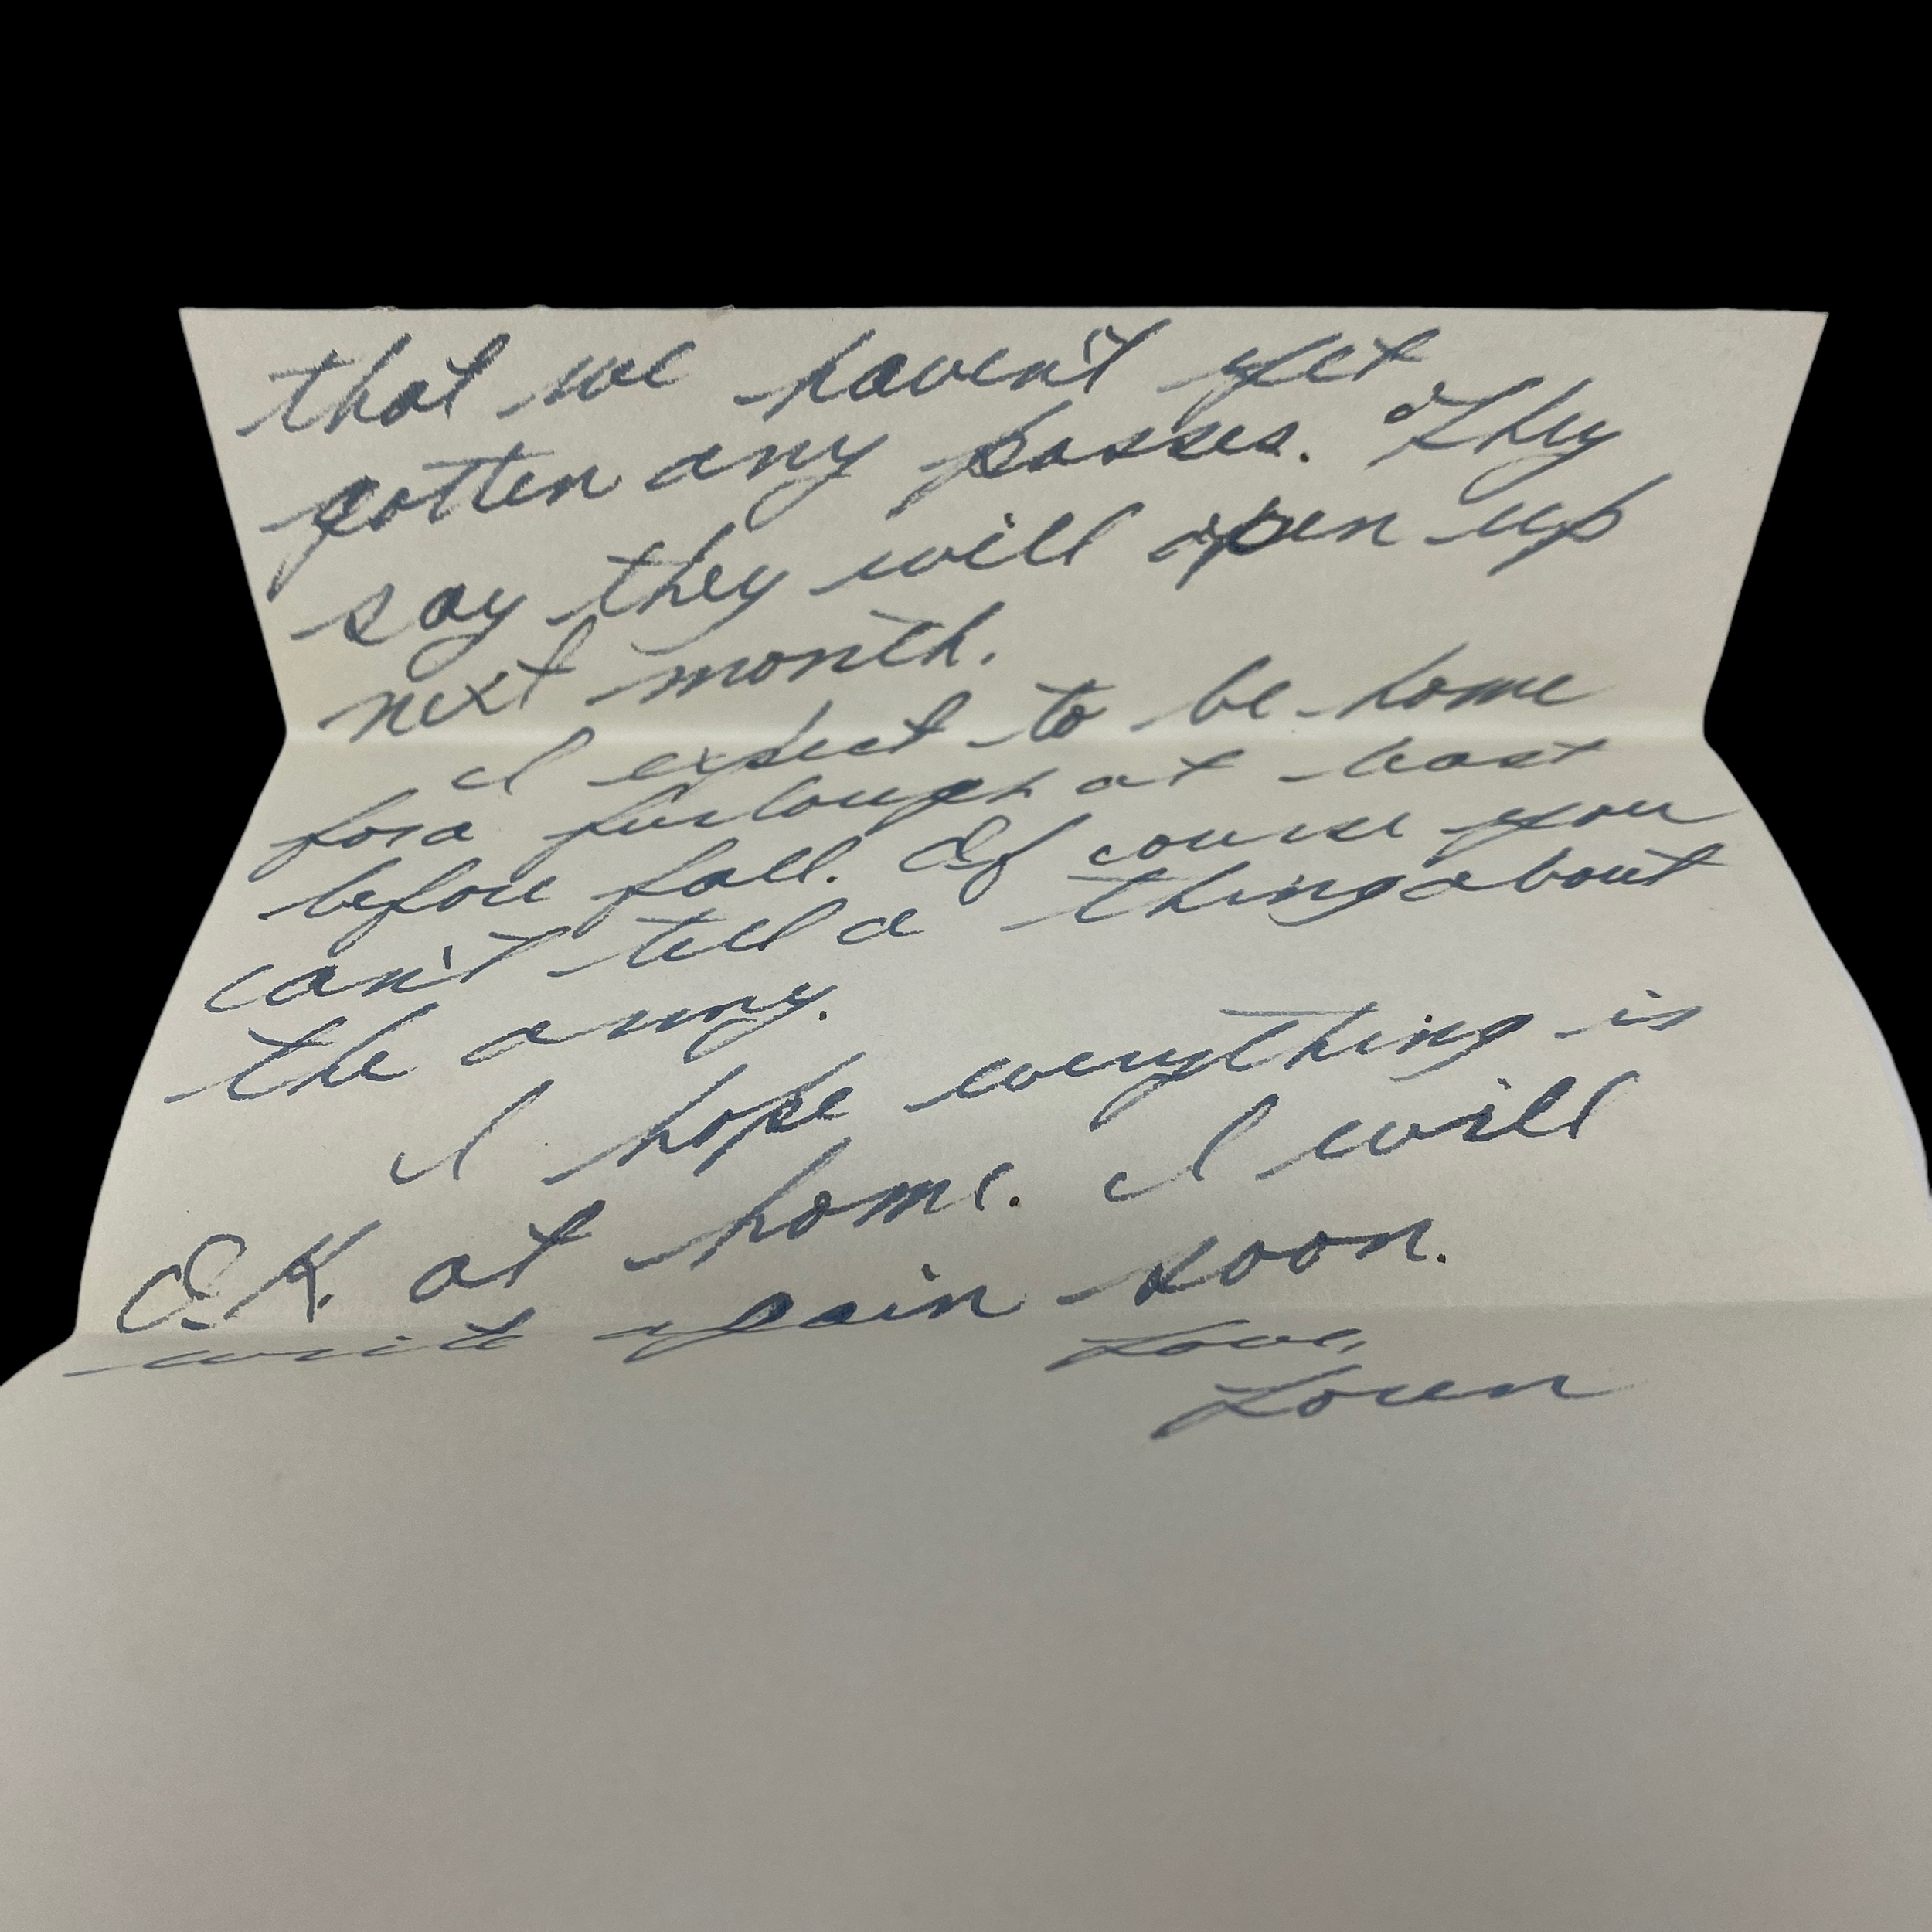 that we haven't yet
gotten any passes. They
say they will open up
next month.
I expect to be home
for a furlough at least
before fall. Of course you
can't tell a thing about
the army.
I hope everything is
O.K. at home. I will
write again soon.
Love,
Loren